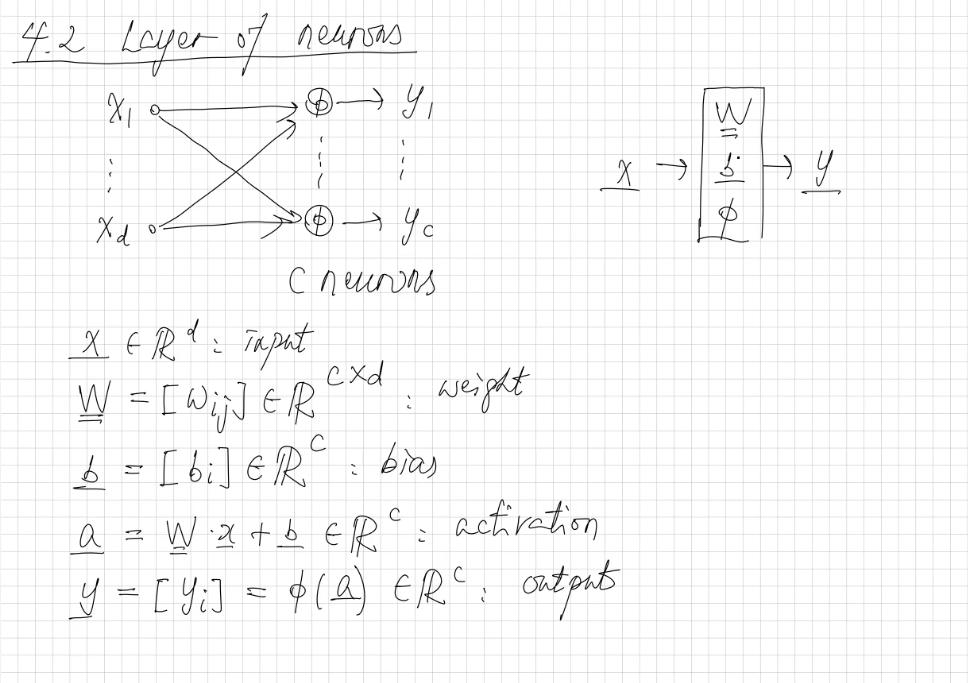 4.2 Layer of neurons
x₁ ϕ → y₁
x_d ϕ → y_c
C neurons
x → W b ϕ → y
x ∈ ℝ^d : input
W = [w_ij] ∈ ℝ^(c×d) : weight
b = [b_i] ∈ ℝ^c : bias
a = W · x + b ∈ ℝ^c : activation
y = [y_i] = ϕ(a) ∈ ℝ^c : output